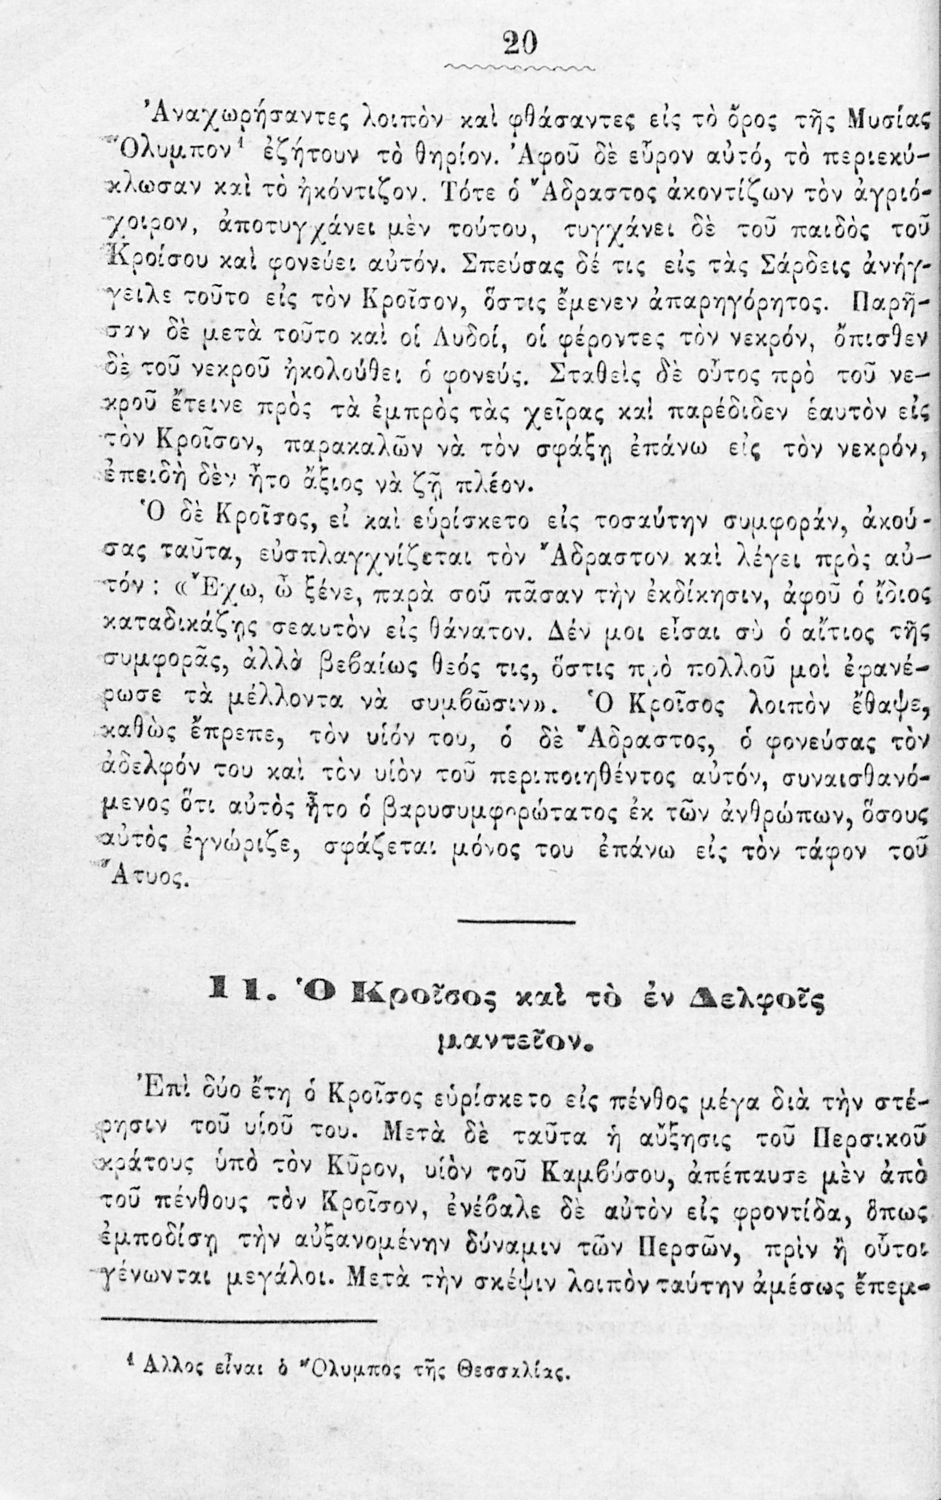 20
Ἀναχωρήσαντες λοιπὸν καὶ φθάσαντες εἰς τὸ ὄρος τῆς Μυσίας
Ὄλυμπον¹ ἐζήτουν τὸ θηρίον. Ἀφοῦ δὲ εὗρον αὐτό, τὸ περιεκύ-
κλωσαν καὶ τὸ ἠκόντιζον. Τότε ὁ Ἄδραστος ἀκοντίζων τὸν ἀγριό-
χοιρον, ἀποτυγχάνει μὲν τούτου, τυγχάνει δὲ τοῦ παιδὸς τοῦ
Κροίσου καὶ φονεύει αὐτόν. Σπεύσας δέ τις εἰς τὰς Σάρδεις ἀνήγ-
γειλε τοῦτο εἰς τὸν Κροῖσον, ὅστις ἔμενεν ἀπαρηγόρητος. Παρῆ-
σαν δὲ μετὰ τοῦτο καὶ οἱ Λυδοί, οἱ φέροντες τὸν νεκρόν, ὄπισθεν
δὲ τοῦ νεκροῦ ἠκολούθει ὁ φονεύς. Σταθεὶς δὲ οὗτος πρὸ τοῦ νε-
κροῦ ἔτεινε πρὸς τὰ ἐμπρὸς τὰς χεῖρας καὶ παρέδιδεν ἑαυτὸν εἰς
τὸν Κροῖσον, παρακαλῶν νὰ τὸν σφάξῃ ἐπάνω εἰς τὸν νεκρόν,
ἐπειδὴ δὲν ἦτο ἄξιος νὰ ζῇ πλέον.
Ὁ δὲ Κροῖσος, εἰ καὶ εὑρίσκετο εἰς τοσαύτην συμφοράν, ἀκού-
σας ταῦτα, εὐσπλαγχνίζεται τὸν Ἄδραστον καὶ λέγει πρὸς αὐ-
τόν : «Ἔχω, ὦ ξένε, παρὰ σοῦ πᾶσαν τὴν ἐκδίκησιν, ἀφοῦ ὁ ἴδιος
καταδικάζῃς σεαυτὸν εἰς θάνατον. Δέν μοι εἶσαι σὺ ὁ αἴτιος τῆς
συμφορᾶς, ἀλλὰ βεβαίως θεός τις, ὅστις πρὸ πολλοῦ μοὶ ἐφανέ-
ρωσε τὰ μέλλοντα νὰ συμβῶσιν». Ὁ Κροῖσος λοιπὸν ἔθαψε,
καθὼς ἔπρεπε, τὸν υἱόν του, ὁ δὲ Ἄδραστος, ὁ φονεύσας τὸν
ἀδελφόν του καὶ τὸν υἱὸν τοῦ περιποιηθέντος αὐτόν, συναισθανό-
μενος ὅτι αὐτὸς ἦτο ὁ βαρυσυμφορώτατος ἐκ τῶν ἀνθρώπων, ὅσους
αὐτὸς ἐγνώριζε, σφάζεται μόνος του ἐπάνω εἰς τὸν τάφον τοῦ
Ἄτυος.
11. Ὁ Κροῖσος καὶ τὸ ἐν Δελφοῖς
μαντεῖον.
Ἐπὶ δύο ἔτη ὁ Κροῖσος εὑρίσκετο εἰς πένθος μέγα διὰ τὴν στέ-
ρησιν τοῦ υἱοῦ του. Μετὰ δὲ ταῦτα ἡ αὔξησις τοῦ Περσικοῦ
κράτους ὑπὸ τὸν Κῦρον, υἱὸν τοῦ Καμβύσου, ἀπέπαυσε μὲν ἀπὸ
τοῦ πένθους τὸν Κροῖσον, ἐνέβαλε δὲ αὐτὸν εἰς φροντίδα, ὅπως
ἐμποδίσῃ τὴν αὐξανομένην δύναμιν τῶν Περσῶν, πρὶν ἢ οὗτοι
γένωνται μεγάλοι. Μετὰ τὴν σκέψιν λοιπὸν ταύτην ἀμέσως ἔπεμ-
¹ Αλλος εἶναι ὁ Ὄλυμπος τῆς Θεσσαλίας.